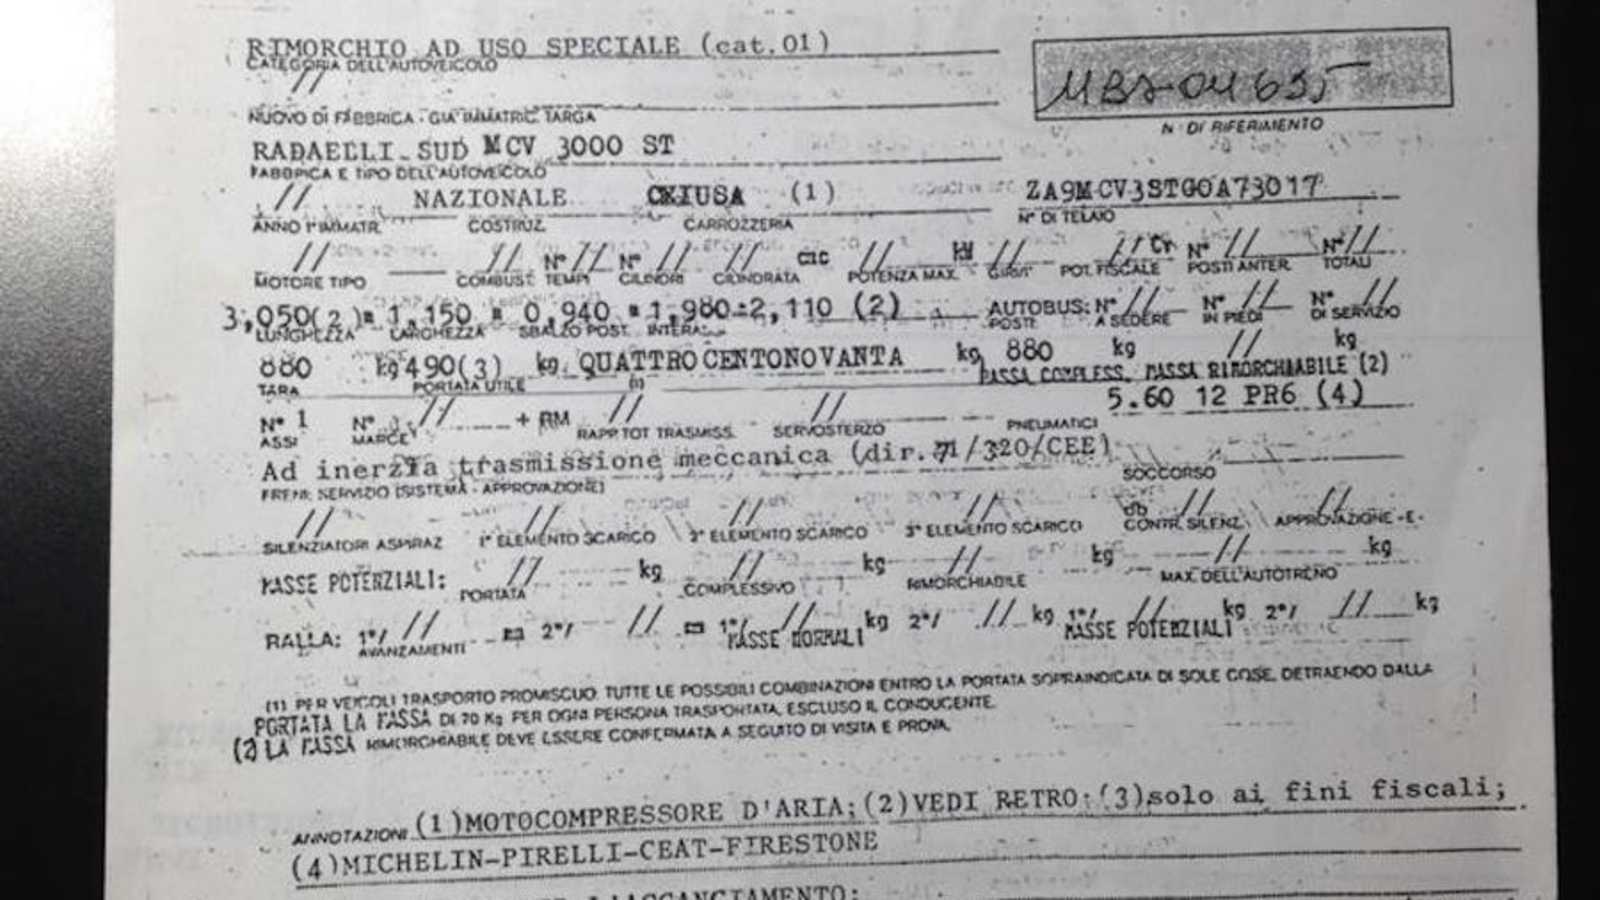 RIMORCHIO AD USO SPECIALE (cat.01)
CATEGORIA DELL'AUTOVEICOLO
//
NUOVO DI FABBRICA - GIA' IMMATRIC. TARGA
N. DI RIFERIMENTO
RADAELLI SUD MCV 3000 ST
FABBRICA E TIPO DELL'AUTOVEICOLO
// NAZIONALE CHIUSA (1) ZA9MCV3STG0A73017
ANNO 1ª IMMATR. COSTRUZ. CARROZZERIA N° DI TELAIO
// // N° // N° // // cmc // kW // // CV N° // N° //
MOTORE TIPO COMBUST. TEMPI CILINDRI CILINDRATA POTENZA MAX. GIRI/1' POT. FISCALE POSTI ANTER. TOTALI
3,050(2)= 1,150 = 0,940 = 1,980÷2,110 (2) AUTOBUS: N° // N° // N° //
LUNGHEZZA LARGHEZZA SBALZO POST. INTERAS. POSTI: A SEDERE IN PIEDI DI SERVIZIO
880 kg 490(3) kg. QUATTROCENTONOVANTA kg 880 kg // kg
TARA PORTATA UTILE (1) MASSA COMPLESS. MASSA RIMORCHIABILE (2)
N° 1 N° // + RM // // 5.60 12 PR6 (4)
ASSI MARCE RAPP. TOT. TRASMISS. SERVOSTERZO PNEUMATICI
Ad inerzia trasmissione meccanica (dir. 71/320/CEE)
FRENI: SERVIZIO (SISTEMA - APPROVAZIONE) SOCCORSO
// // // // db // //
SILENZIATORI ASPIRAZ. 1° ELEMENTO SCARICO 2° ELEMENTO SCARICO 3° ELEMENTO SCARICO CONTR. SILENZ. APPROVAZIONE -E-
MASSE POTENZIALI: // kg // kg // kg // kg
PORTATA COMPLESSIVO RIMORCHIABILE MAX. DELL'AUTOTRENO
RALLA: 1°/ // m 2°/ // m 1°/ // kg 2°/ // kg 1°/ // kg 2°/ // kg
AVANZAMENTI MASSE NORMALI MASSE POTENZIALI
(1) PER VEICOLI TRASPORTO PROMISCUO TUTTE LE POSSIBILI COMBINAZIONI ENTRO LA PORTATA SOPRAINDICATA DI SOLE COSE, DETRAENDO DALLA
PORTATA LA MASSA DI 70 Kg PER OGNI PERSONA TRASPORTATA, ESCLUSO IL CONDUCENTE.
(2) LA MASSA RIMORCHIABILE DEVE ESSERE CONFERMATA A SEGUITO DI VISITA E PROVA.
ANNOTAZIONI (1)MOTOCOMPRESSORE D'ARIA;(2)VEDI RETRO;(3)solo ai fini fiscali;
(4)MICHELIN-PIRELLI-CEAT-FIRESTONE